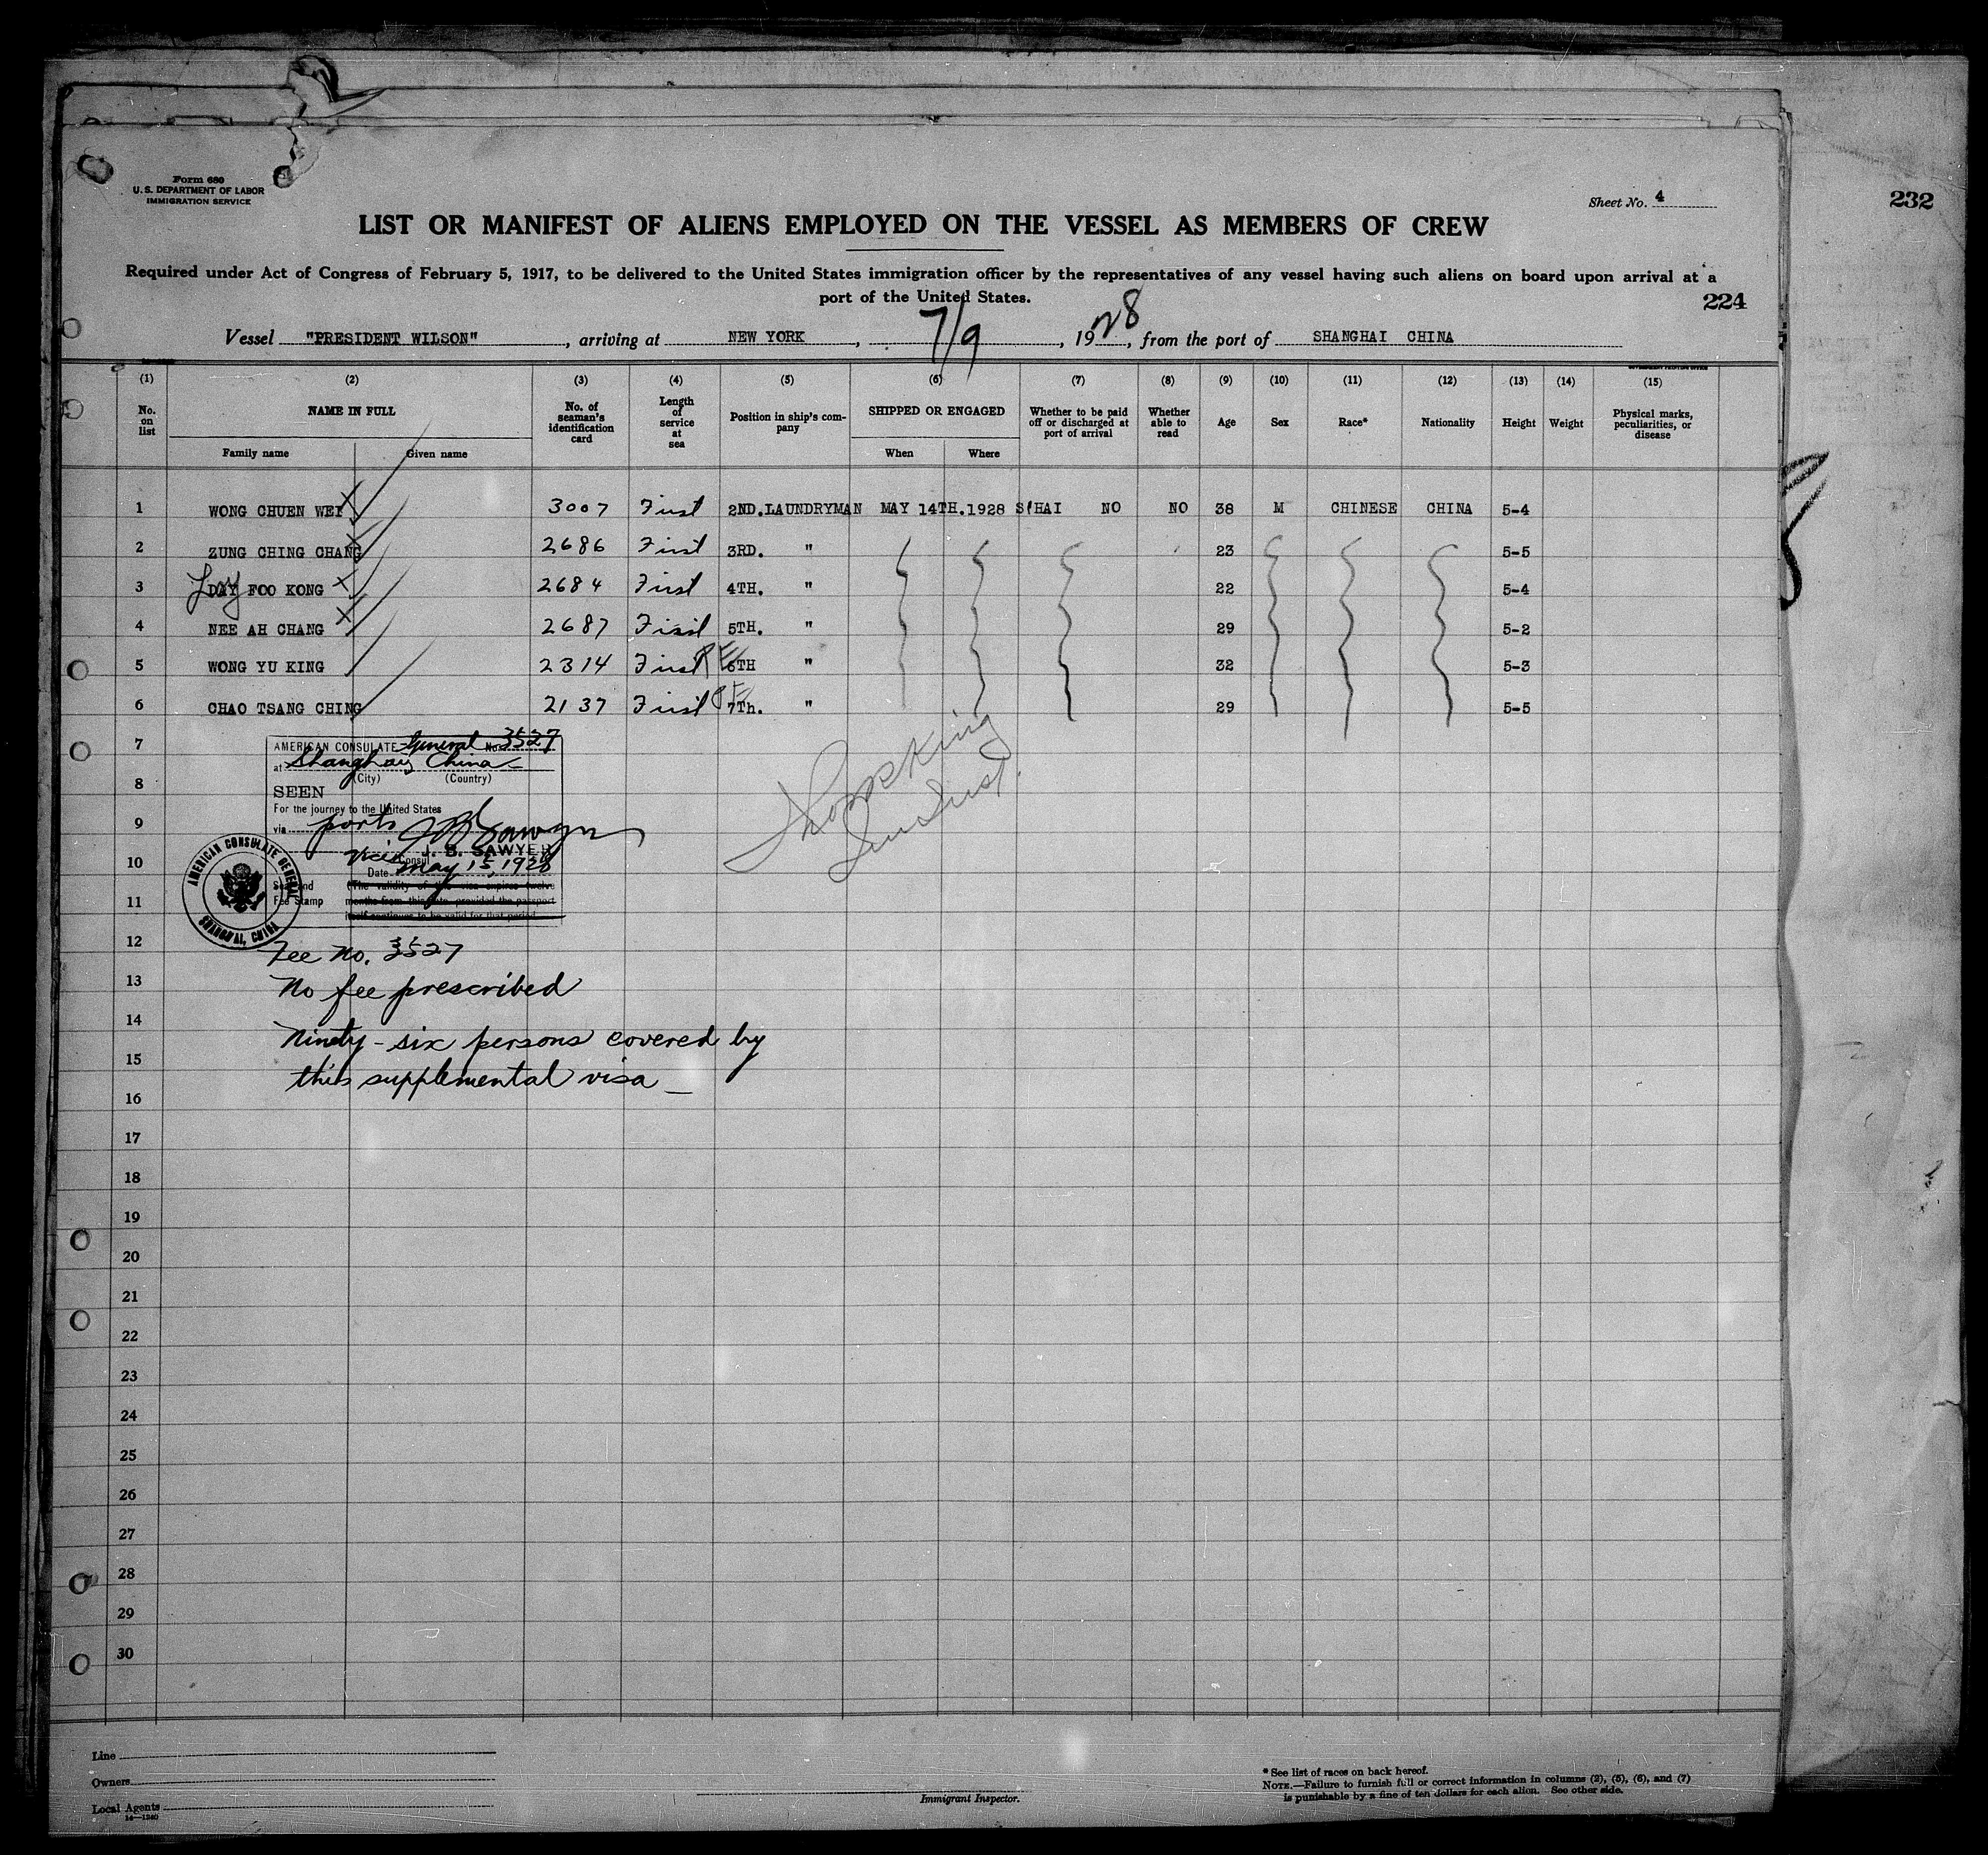 Form 680
U. S. DEPARTMENT OF LABOR
IMMIGRATION SERVICE
Sheet No. 4
232
LIST OR MANIFEST OF ALIENS EMPLOYED ON THE VESSEL AS MEMBERS OF CREW
Required under Act of Congress of February 5, 1917, to be delivered to the United States immigration officer by the representatives of any vessel having such aliens on board upon arrival at a
port of the United States.
224
Vessel "PRESIDENT WILSON", arriving at NEW YORK, 7/9, 1928, from the port of SHANGHAI CHINA
(1) (2) (3) (4) (5) (6) (7) (8) (9) (10) (11) (12) (13) (14) (15)
No. on list
NAME IN FULL
Family name Given name
No. of seaman's identification card
Length of service at sea
Position in ship's company
SHIPPED OR ENGAGED
When Where
Whether to be paid off or discharged at port of arrival
Whether able to read
Age
Sex
Race*
Nationality
Height
Weight
Physical marks, peculiarities, or disease
1 WONG CHUEN WEI 3007 First 2ND.LAUNDRYMAN MAY 14TH.1928 S'HAI NO NO 38 M CHINESE CHINA 5-4
2 ZUNG CHING CHANG 2686 First 3RD. " 23 5-5
3 DAY FOO KONG 2684 First 4TH. " 22 5-4
4 NEE AH CHANG 2687 First 5TH. " 29 5-2
5 WONG YU KING 2314 First 6TH " 32 5-3
6 CHAO TSANG CHING 2137 First 7Th. " 29 5-5
7
8
9
10
11
12
13
14
15
16
17
18
19
20
21
22
23
24
25
26
27
28
29
30
AMERICAN CONSULATE General No. 3527
at Shanghai China
(City) (Country)
SEEN
For the journey to the United States
via ports JB Sawyer
J. B. SAWYER
Vice Consul
Date May 15, 1928
Seal and
Fee Stamp
(The validity of this visa expires twelve
months from this date, provided the passport
itself continues to be valid for that period
AMERICAN CONSULATE GENERAL
SHANGHAI, CHINA
Fee No. 3527
No fee prescribed
Ninety-six persons covered by
this supplemental visa
Line
Owners
Local Agents
14—1240
Immigrant Inspector.
* See list of races on back hereof.
NOTE.—Failure to furnish full or correct information in columns (2), (5), (6), and (7)
is punishable by a fine of ten dollars for each alien. See other side.